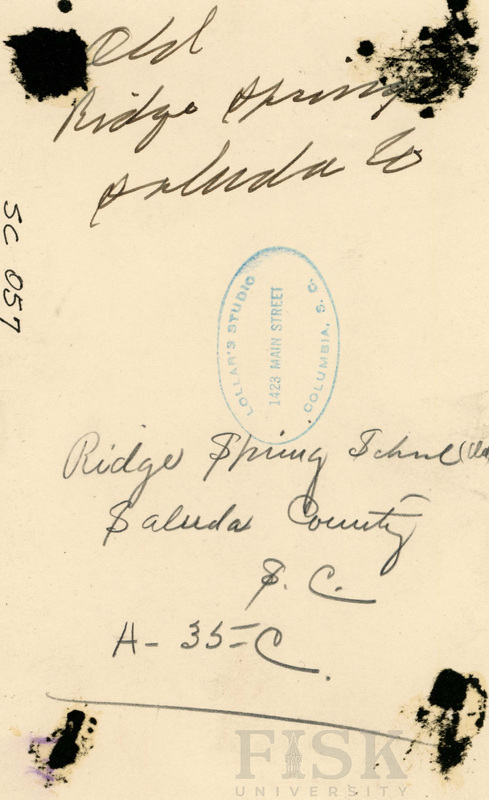 Old
Ridge Spring
Saluda Co
SC 057
LOLLAR'S STUDIO
1423 MAIN STREET
COLUMBIA, S. C.
Ridge Spring School (Old
Saluda County
S. C.
A- 35-C.
FISK
UNIVERSITY